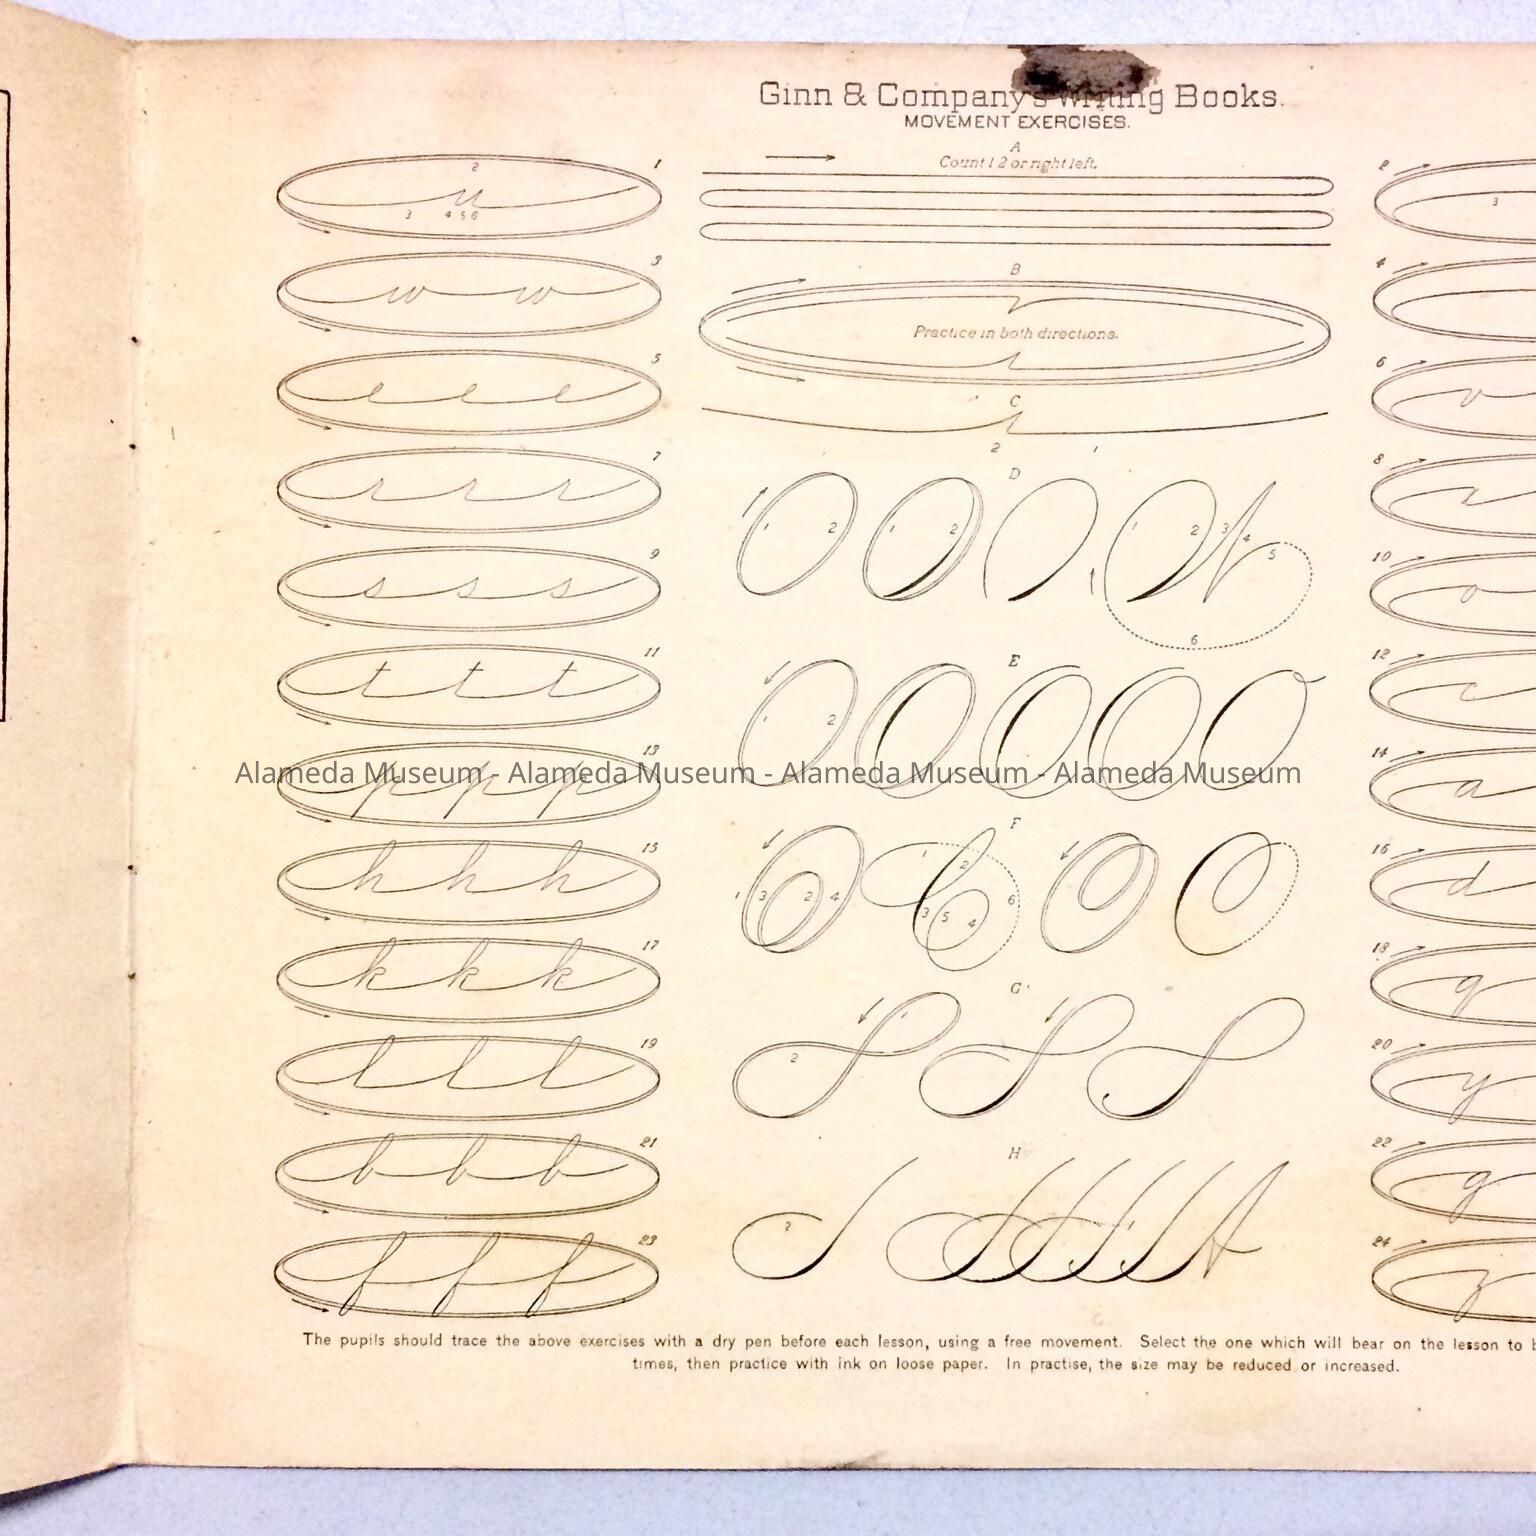 Ginn & Company's Writing Books.
MOVEMENT EXERCISES.
1
2
3 4 5 6
u
3
w w
5
e e e
7
r r r
9
s s s
11
t t t
13
p p p
15
h h h
17
k k k
19
l l l
21
b b b
23
f f f
A
Count 1 2 or right left.
B
Practice in both directions.
C
2 1
D
1 2 1 2 1 2 3 4 5
6
E
1 2
F
1 3 2 4 1 2 3 5 4 6
G
1
2
H
2 1
A
2
3
4
6
v
8
r
10
o
12
c
14
a
16
d
18
q
20
y
22
g
24
z
Alameda Museum - Alameda Museum - Alameda Museum - Alameda Museum
The pupils should trace the above exercises with a dry pen before each lesson, using a free movement. Select the one which will bear on the lesson to
times, then practice with ink on loose paper. In practise, the size may be reduced or increased.